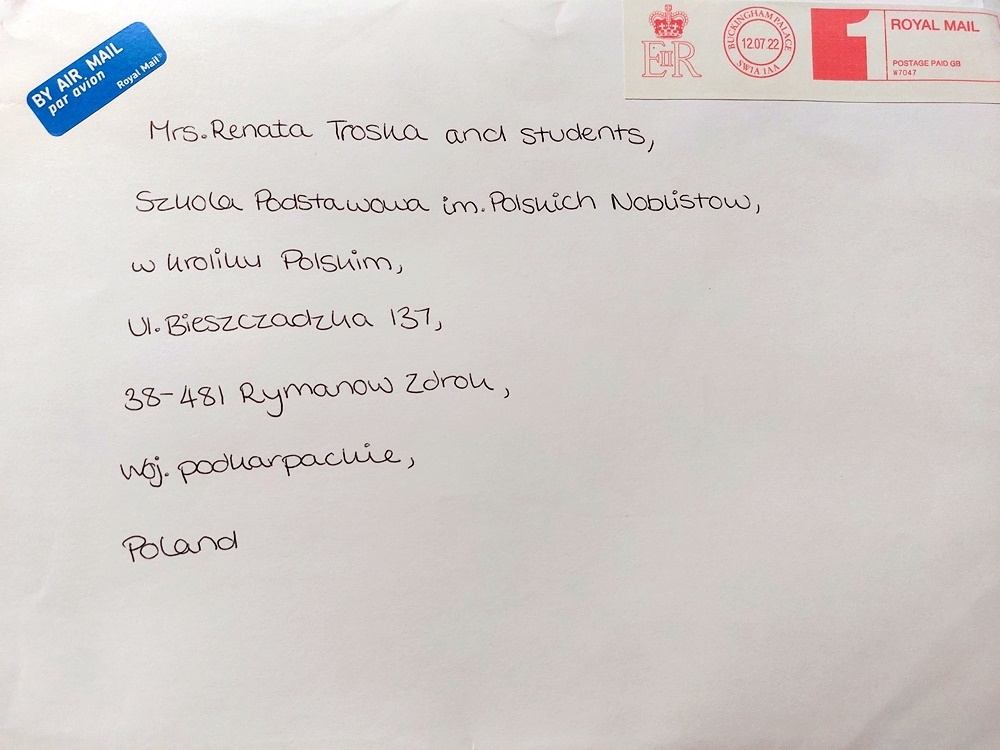 BY AIR MAIL
par avion
Royal Mail®
EIIR
BUCKINGHAM PALACE
12.07.22
SW1A 1AA
1
ROYAL MAIL
POSTAGE PAID GB
W7047
Mrs. Renata Troska and students,
Szkola Podstawowa im. Polskich Noblistow,
w kroliku Polskim,
Ul. Bieszczadzka 137,
38-481 Rymanow Zdrok,
woj. podkarpackie,
Poland